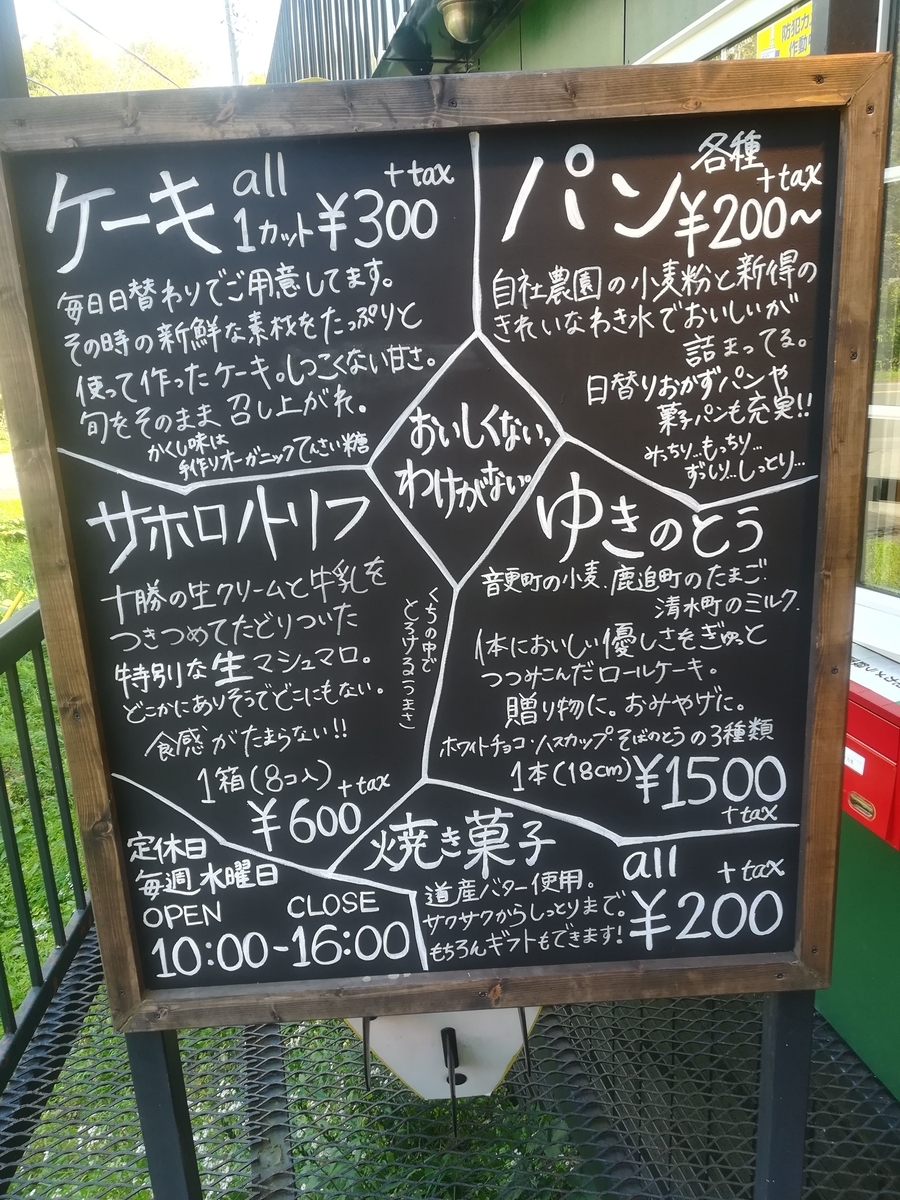 防犯カ
作動
ケーキ all 1カット ¥300 +tax
毎日日替わりでご用意してます。
その時の新鮮な素材をたっぷりと
使って作ったケーキ。しつこくない甘さ。
旬をそのまま召し上がれ。
かくし味は
手作りオーガニックてんさい糖
パン 各種 ¥200〜 +tax
自社農園の小麦粉と新得の
きれいなわき水でおいしいが
詰まってる。
日替りおかずパンや
菓子パンも充実!!
みっちり…もっちり…
ずしり…しっとり…
おいしくない、
わけがない。
サホロノトリフ
十勝の生クリームと牛乳を
つきつめてたどりついた
特別な生マシュマロ。
どこかにありそうでどこにもない。
食感がたまらない!!
くちの中で
とろけるうまさ
1箱(8コ入) +tax
¥600
ゆきのとう
音更町の小麦.鹿追町のたまご.
清水町のミルク.
体においしい優しさをぎゅっと
つつみこんだロールケーキ。
贈り物に。おみやげに。
ホワイトチョコ・ハスカップ・そばのとうの3種類
1本(18cm)¥1500
+tax
定休日
毎週水曜日
OPEN CLOSE
10:00-16:00
焼き菓子 all ¥200 +tax
道産バター使用。
サクサクからしっとりまで。
もちろんギフトもできます!